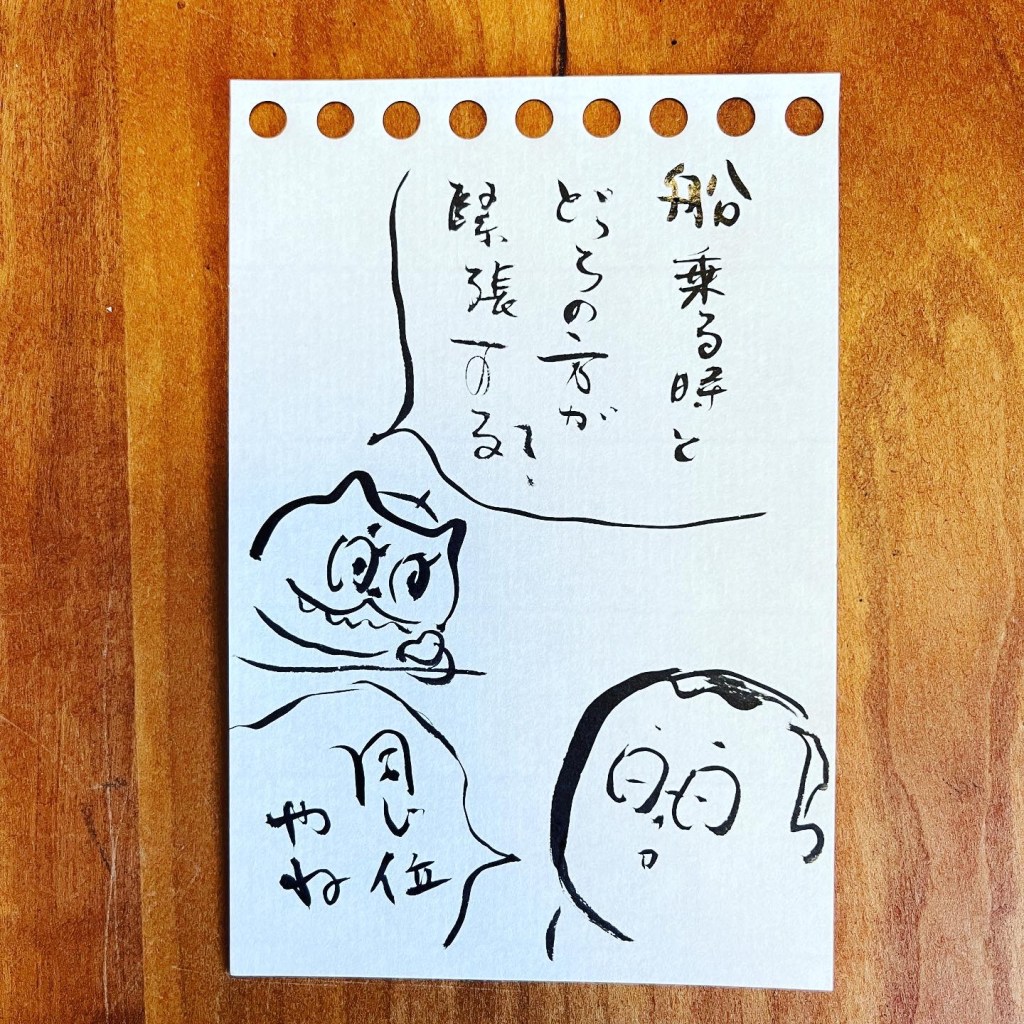 船乗る時と
どっちの方が
緊張する?
同じ位
やね